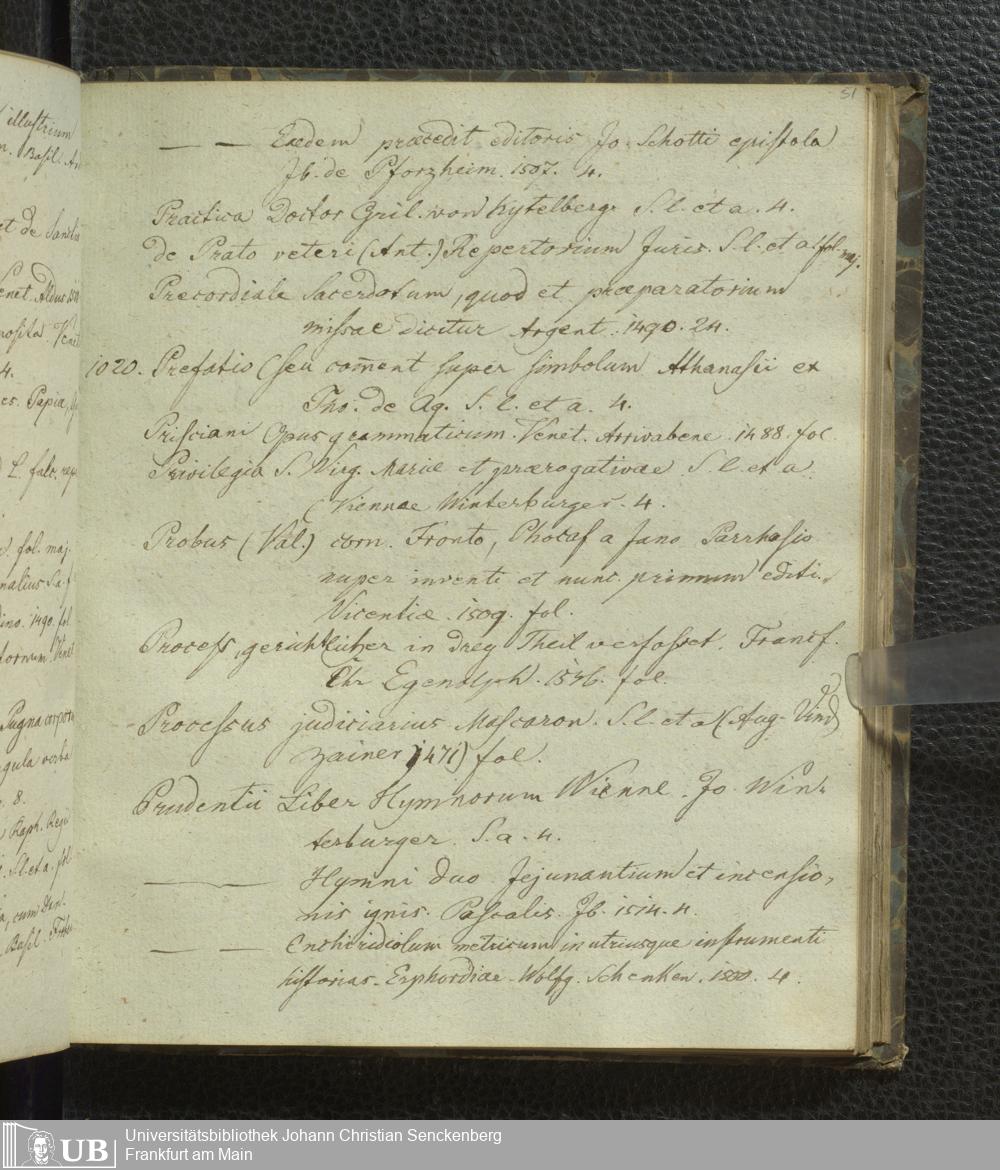 51
— — Eaedem præcedit editoris Jo. Schotti epistola
Jb. de Pforzheim. 1507. 4.
Practica Doctor Gril. von Kytelberg. S. l. et a. 4.
de Prato veteri (Ant.) Repertorium Juris. S. l. et a. fol. maj.
Precordiale sacerdotum, quod et præparatorium
missae dicitur Argent. 1490. 24.
1020. Prefatio (seu com̄ent super simbolum Athanasii ex
Tho. de Aq. S. l. et a. 4.
Prisciani Opus grammaticum. Venet. Arrivabene. 1488. fol.
Privilegia S. Virg. Mariæ et prærogativae S. l. et a.
(Viennae Winterburger. 4.
Probus (Val.) corn. Fronto, Phocas a Jano Parrhasio
nuper inventi et nunc primum editi.
Vicentiæ. 1509. fol.
Process, gerichtlicher in drey Theil verfasset. Francf.
Chr Egenolph. 1536. fol.
Processus judiciarius Mascaron. S. l. et a (Aug. Vind
Zainer 1471) fol.
Prudentii Liber Hymnorum Vienne. Jo. Win-
terburger. S. a. 4.
— Hymni duo Jejunantium et incensio-
nis ignis. Pascalis. Jb. 1514. 4.
— — Enchiridiolum metricum in utriusque instrumenti
historias. Erphordiae. Wolfg. Schenken. 1500. 4.
illustrium
Basil.
et de
Venet. Aldus
4.
es. Papia,
fol. maj.
1490. fol
Pugna
verba
8.
Raph. Regi
S. l. et a. fol
cum
Basil.
UB
Universitätsbibliothek Johann Christian Senckenberg
Frankfurt am Main